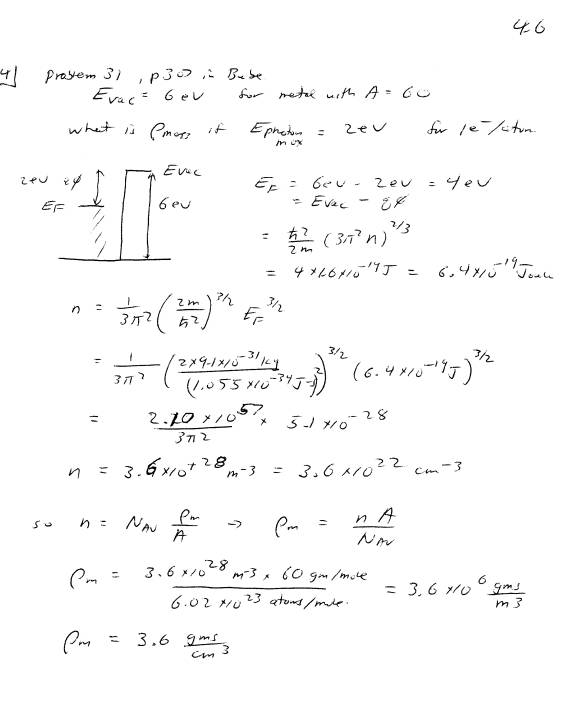 4.6
4] Problem 31, p 300 in Bube
Evac = 6 eV for metal with A = 60
what is ρmass if Ephoton max = 2eV for 1e⁻/atom
2eV qφ Evac EF 6eV
EF = 6eV - 2eV = 4eV
= Evac - qφ
= ℏ²/2m (3π²n)^2/3
= 4×1.6×10⁻¹⁹J = 6.4×10⁻¹⁹Joule
n = 1/3π² (2m/ℏ²)^3/2 EF^3/2
= 1/3π² (2×9.1×10⁻³¹kg/(1.055×10⁻³⁴J-s)²)^3/2 (6.4×10⁻¹⁹J)^3/2
= 2.10×10⁵⁷/3π² × 5.1×10⁻²⁸
n = 3.6×10⁺²⁸ m⁻³ = 3.6×10²² cm⁻³
so n = NAV ρm/A → ρm = nA/NAV
ρm = 3.6×10²⁸ m⁻³ × 60 gm/mole / 6.02×10²³ atoms/mole. = 3.6×10⁶ gms/m3
ρm = 3.6 gms/cm³